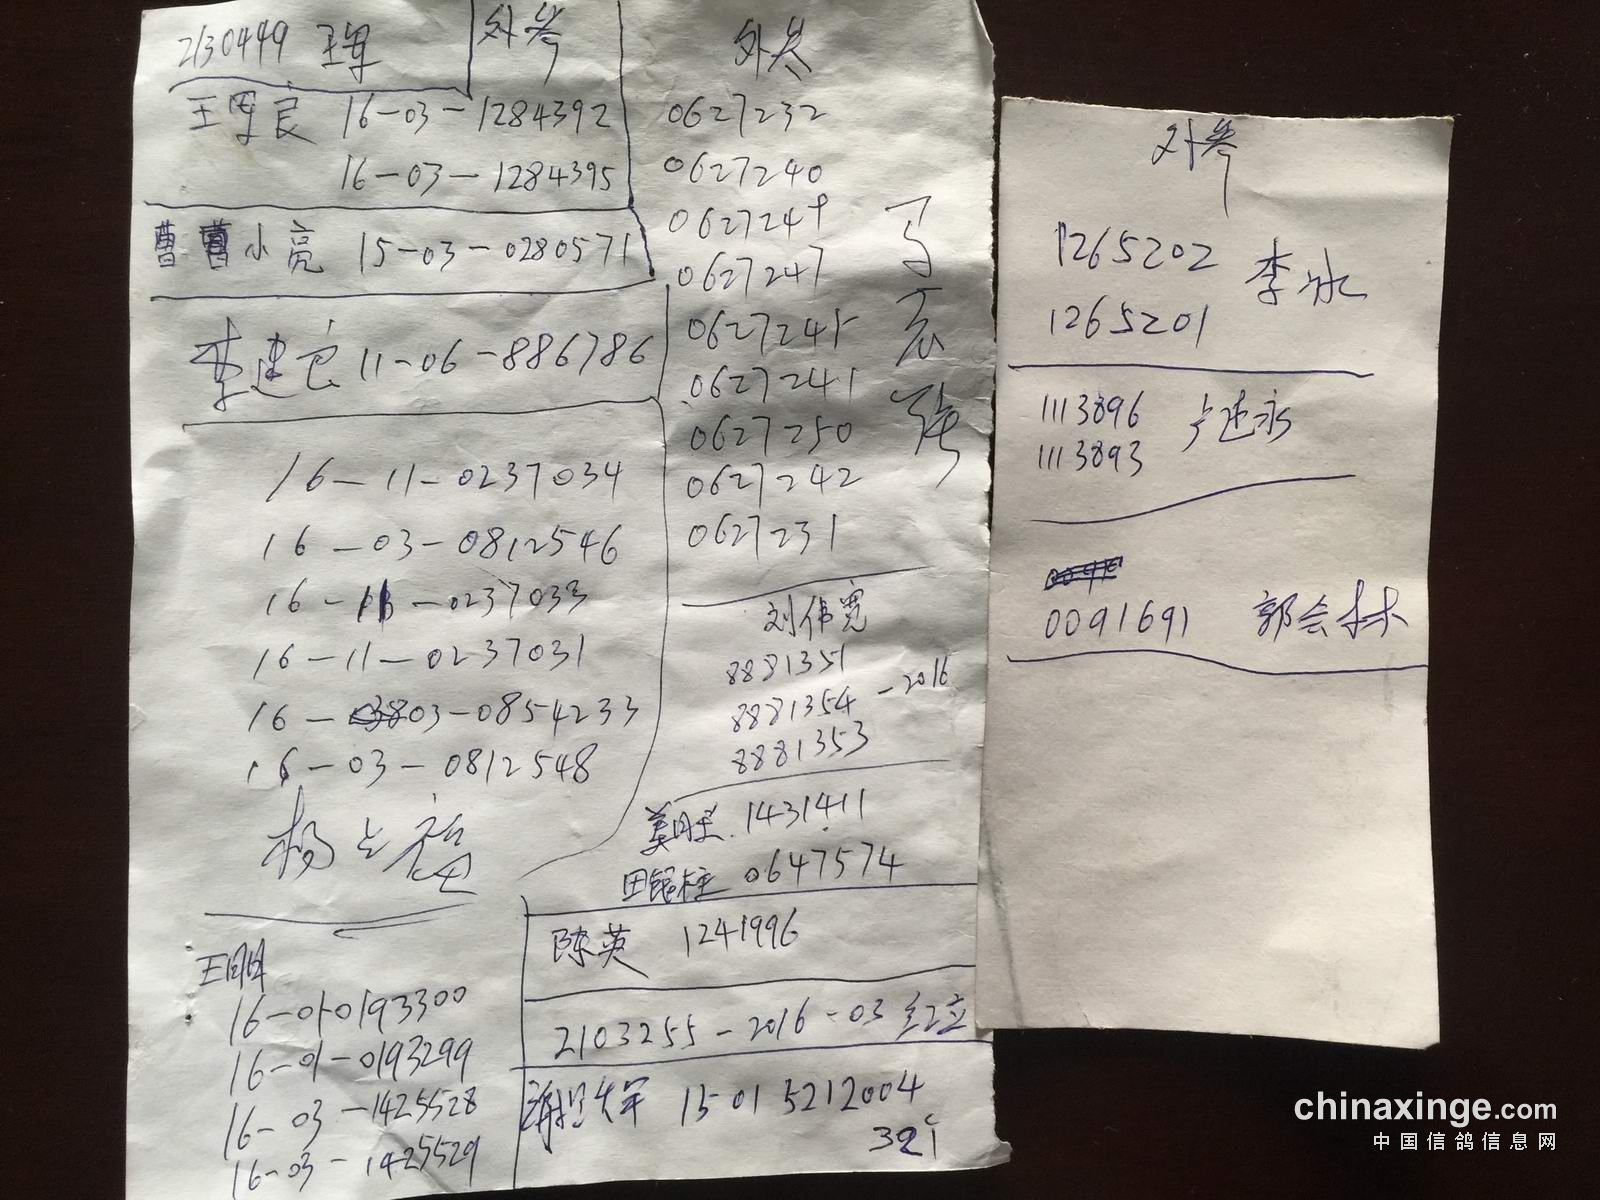 2130449 王军
外参
16-03-1284392
16-03-1284395
曹小亮 15-03-0280571
李建 11-06-886786
16-11-0237034
16-03-0812546
16-11-0237033
16-11-0237031
16-03-0854233
16-03-0812548
杨 福
王
16-01-0193300
16-01-0193299
16-03-1425528
16-03-1425529
外参
0627232
0627240
0627249
0627247
0627245
0627241
0627250
0627242
0627231
马宏
刘伟宽
8881351
8881354 -2016
8881353
1431411
田银柱 0647574
陈英 1241996
2103255-2016-03 红立
谢 军 15-01 5212004
32
外参
1265202 李冰
1265201
1113896 卢建永
1113893
0091691 郭会林
chinaxinge.com
中国信鸽信息网